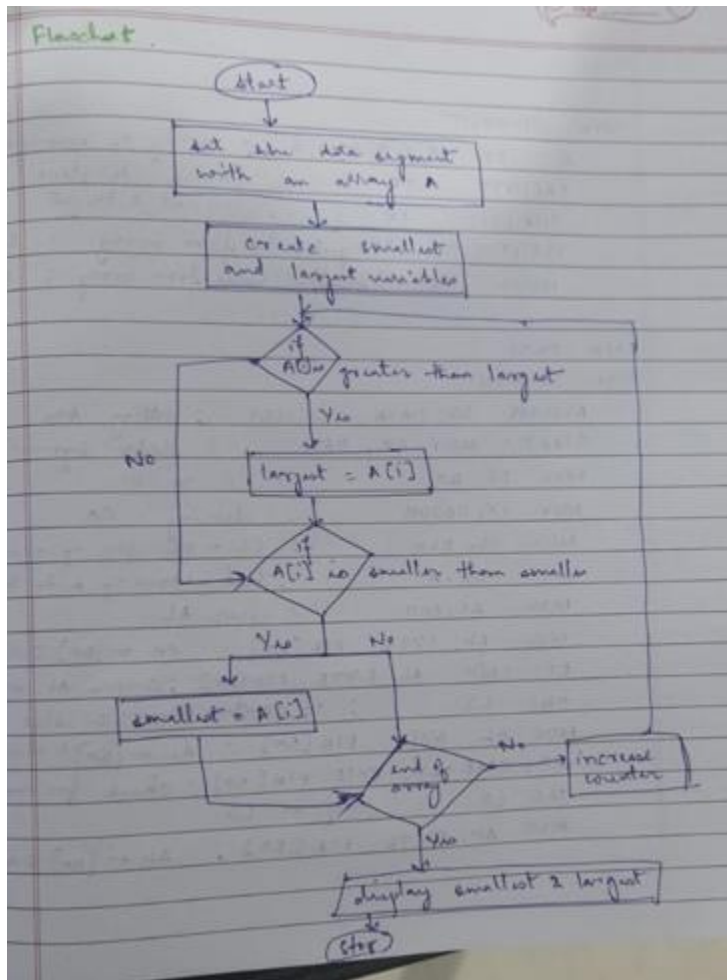 Flowchart
start
set the data segment
with an array A
create smallest
and largest variables
if
A[i] is greater than largest
Yes
No
largest = A[i]
if
A[i] is smaller than smaller
Yes No
smallest = A[i]
end of
array
No
increase
counter
Yes
display smallest & largest
stop